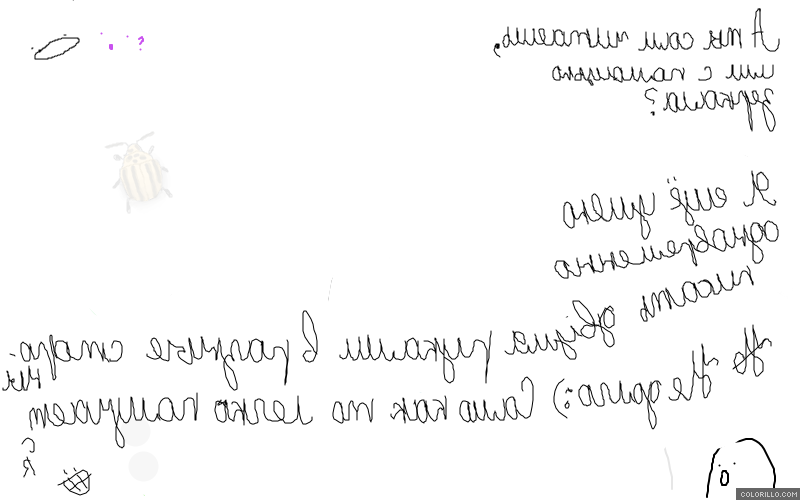 А ты сам читаешь,
или с помощью
зеркала?
Я ещё умею
одновременно
писать двумя руками в разные сторо-
ны
Не Леди :) Само как то легко получает
ся
?
COLORILLO.COM